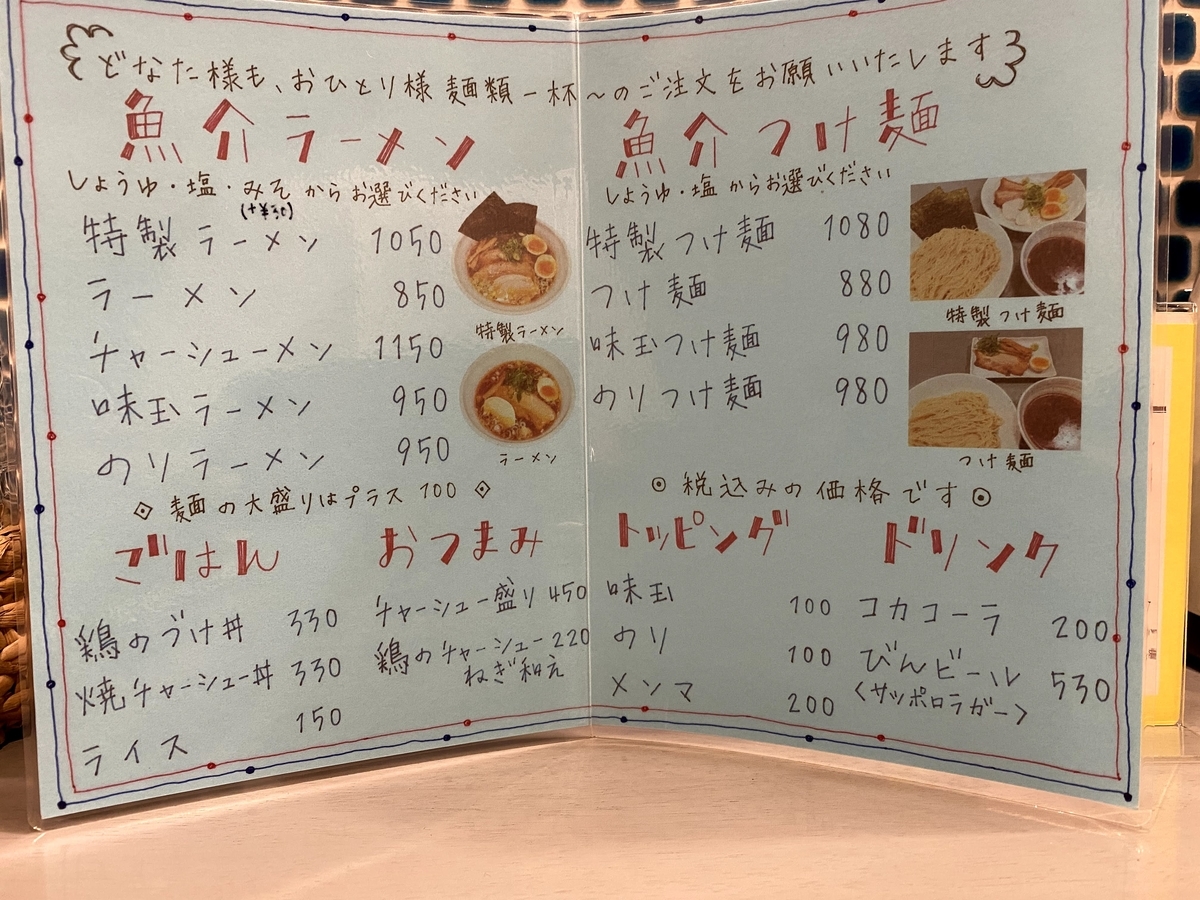 どなた様も、おひとり様 麺類一杯〜のご注文をお願いいたします
魚介ラーメン
しょうゆ・塩・みそ からお選びください
(+¥50)
特製ラーメン 1050
ラーメン 850
チャーシューメン 1150
味玉ラーメン 950
のりラーメン 950
特製ラーメン
ラーメン
◇ 麺の大盛りはプラス 100 ◇
ごはん
鶏のづけ丼 330
焼チャーシュー丼 330
ライス 150
おつまみ
チャーシュー盛り 450
鶏のチャーシュー 220
ねぎ和え
魚介つけ麺
しょうゆ・塩からお選びください
特製つけ麺 1080
つけ麺 880
味玉つけ麺 980
のりつけ麺 980
特製つけ麺
つけ麺
◎ 税込みの価格です ◎
トッピング
味玉 100
のり 100
メンマ 200
ドリンク
コカコーラ 200
びんビール 530
<サッポロラガー>